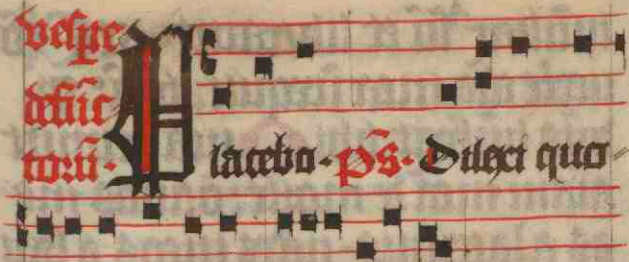 vesp̄e
defūc
torū·
Placebo· p̄s· Dilexi quo-